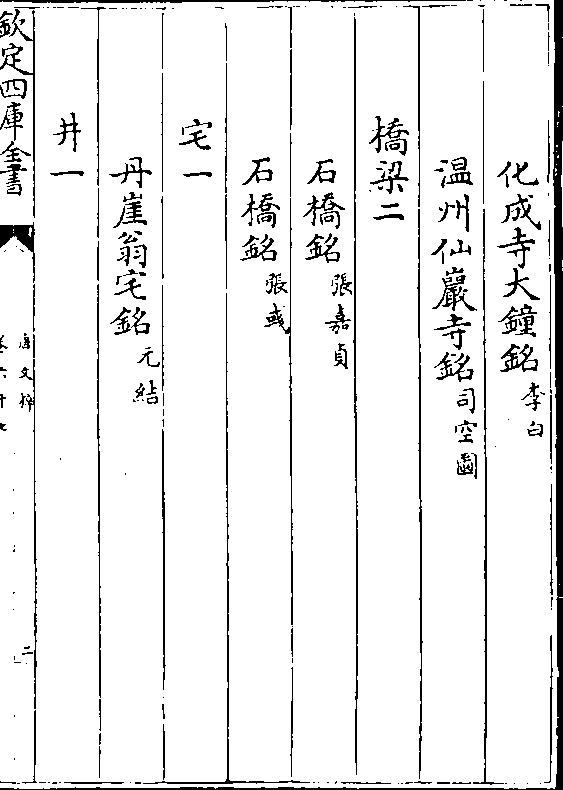 化成寺大鐘銘李白
温州仙巖寺銘司空圖
橋梁二
石橋銘張嘉貞
石橋銘張彧
宅一
丹崖翁宅銘元結
井一
欽定四庫全書
唐文粹
二